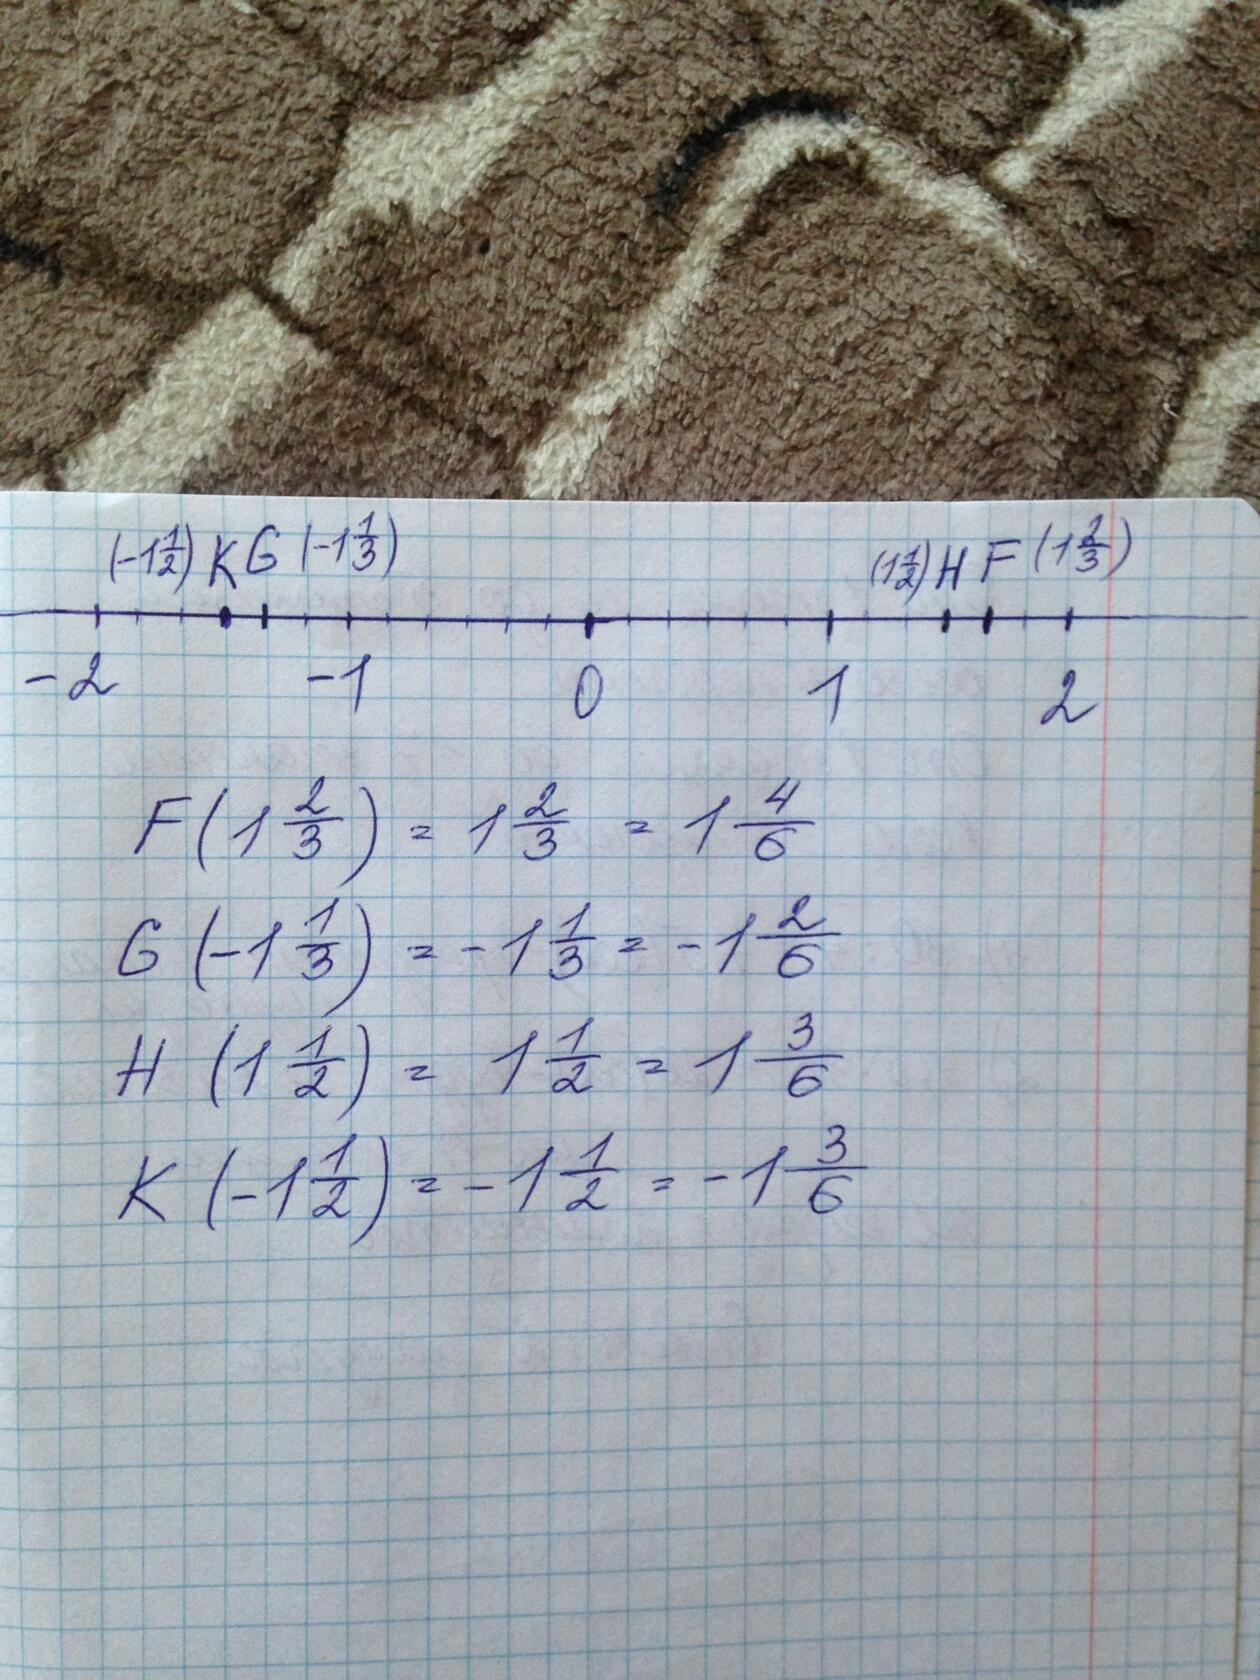 (-1 1/2) K G (-1 1/3) (1 1/2) H F (1 2/3)
-2 -1 0 1 2
F (1 2/3) = 1 2/3 = 1 4/6
G (-1 1/3) = -1 1/3 = -1 2/6
H (1 1/2) = 1 1/2 = 1 3/6
K (-1 1/2) = -1 1/2 = -1 3/6